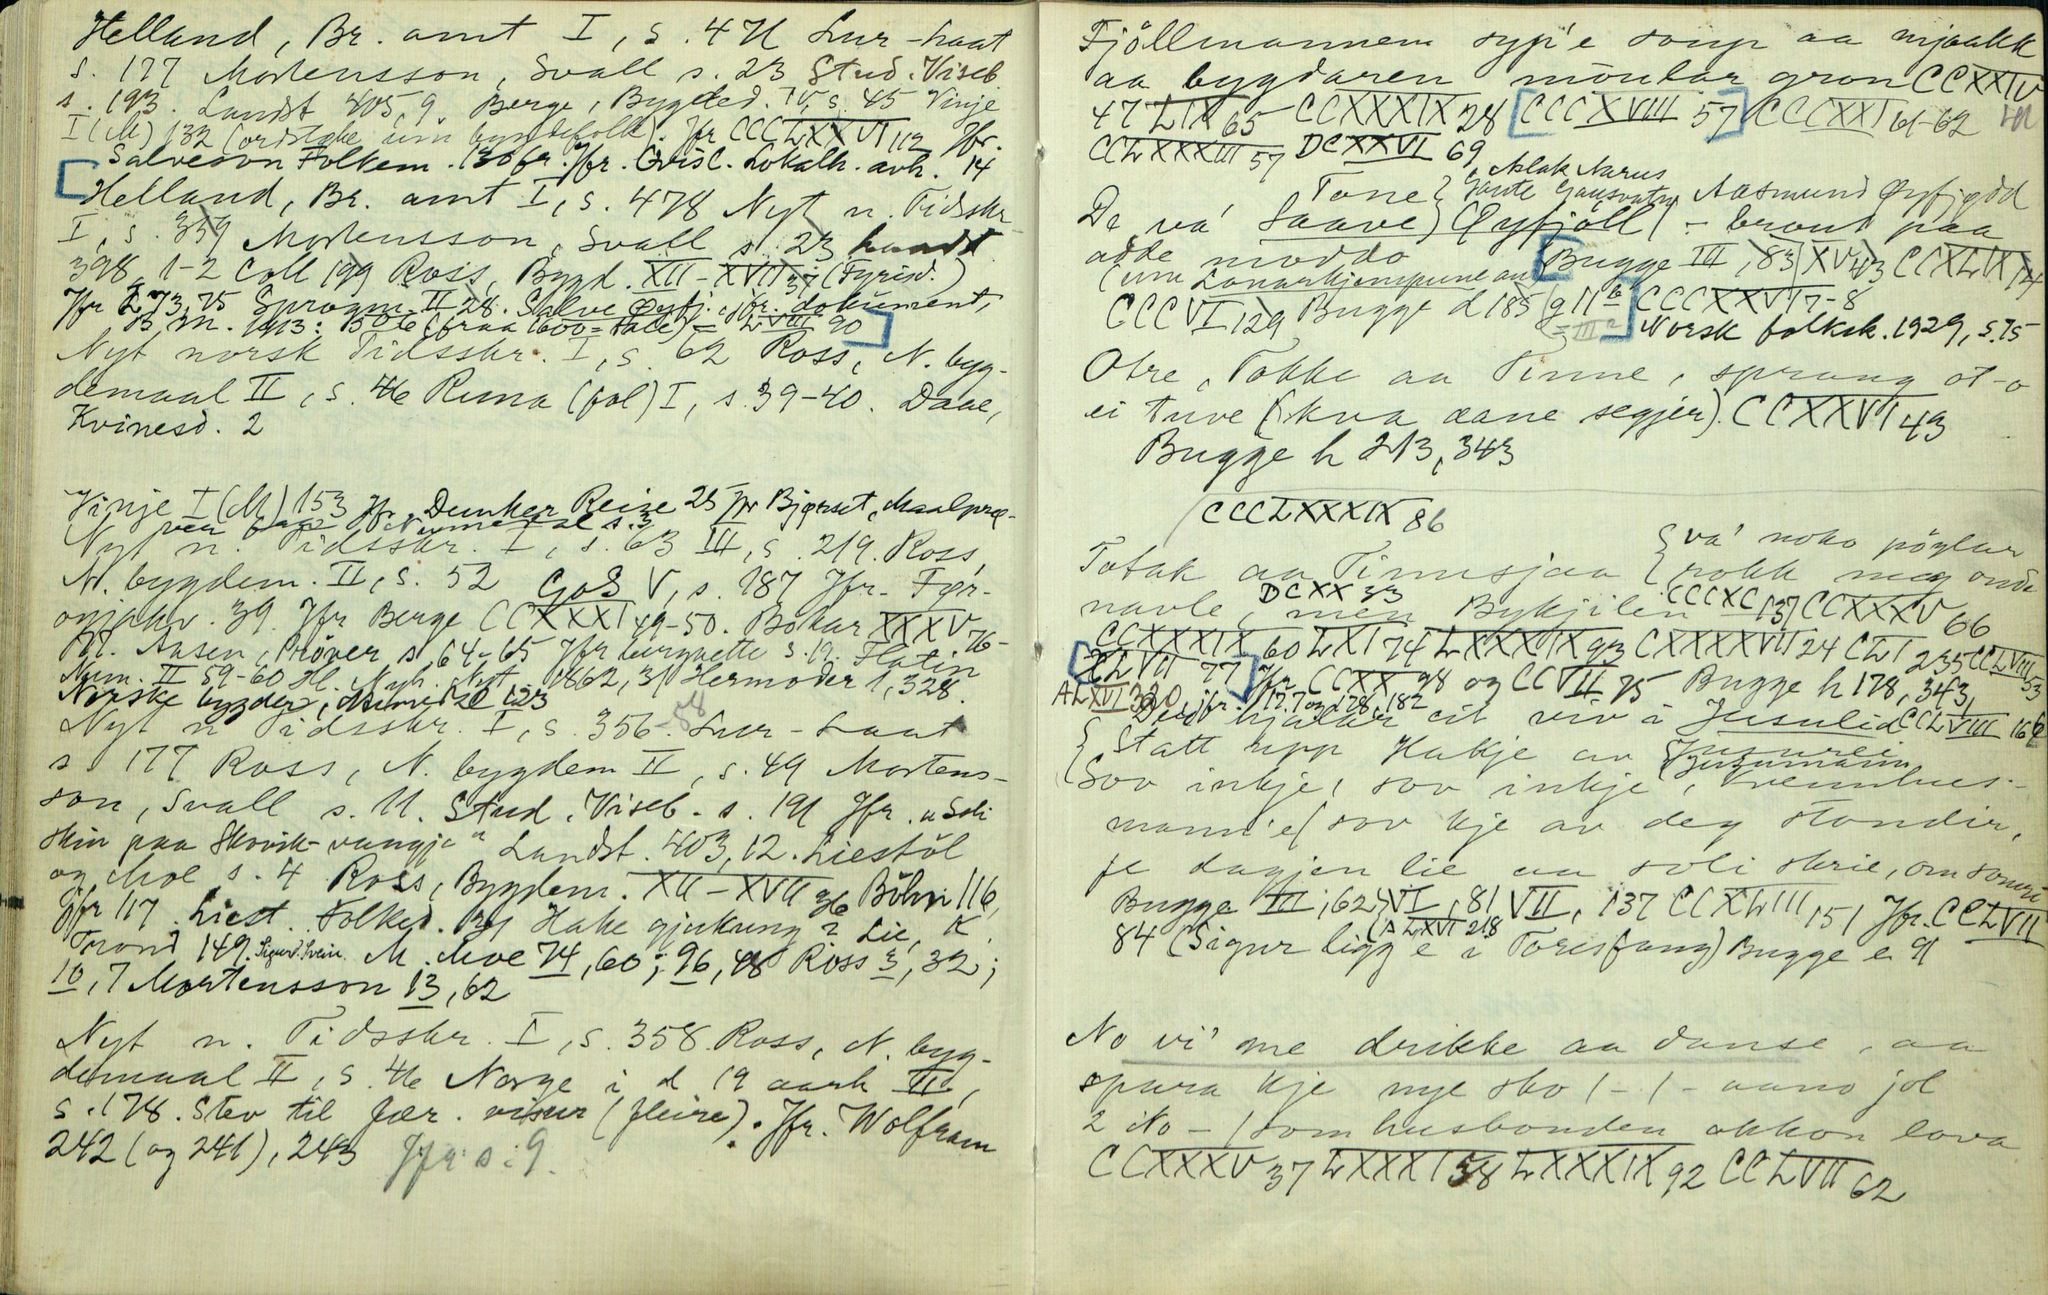 Helland, Br. amt I, s. 471 Lur-haat
s. 177 Mortensson, Svall s. 23 Stud. Viseb
s. 193. Landst 405,9. Berge, Bygded. IV, s. 45 Vinje
I (M) 132 (ordstøke um bygdefolk). Jfr CCCLXXVI 112 Jfr.
Salveson Folkem. 130 fr. Jfr. Grisl. Lokalh. avh. 14
Helland, Br. amt I, s. 478 Nyt n. Tidsskr
I, s. 359 Mortensson, Svall s. 23
398, 1-2 Coll 199 Ross, Bygd. XII-XVII 37 (Fyrisd.)
Jfr 2 73, 75 Sprogm. II 28. dokument,
1913: 1506 (fraa 1600-tale) = LVIII 90
Nyt norsk Tidsskr. I, s. 62 Ross, N. byg-
demaal II, s. 46 Runa (fol) I, s. 39-40. Daae,
Kvinesd. 2
Vinje I (M) 153 Jfr. Dunker Reise 25 Jfr Bjørset, Maalprø-
ver Numedal s. 3
Nyt n. Tidsskr. I, s. 63 III, s. 219. Ross,
N. bygdem. II, s. 52 GoS V, s. 187 Jfr. Før-
39. Jfr Berge CCXXXI 49-50. Bökar XXXV 76-
Aasen, Prøver s. 64-65 Jfr s. 19. Flatin
Num. II 59-60 Ill. Nyh. Nyt 1862, 31 Hermoder 1, 328.
Norske bygder, Numedal 123
Nyt n Tidsskr. I, s. 356-58 Lur-haat
s 177 Ross, N. bygdem II, s. 49 Mortens-
son, Svall s. 11. Stud. Viseb. s. 191 Jfr. "Soli
skin paa Skorvk-vangje" Landst. 403, 12. Liestöl
og Moe s. 4 Ross, Bygdem. XII-XVII 36 Böhn 116,
Jfr 117. Liest. Folked. Hake gjukung? Lie, K.
Trond 149. Sigurd Svein. M. Moe 74, 60; 96, 48 Ross 3, 32;
10, 7 Mortensson 13, 62
Nyt n. Tidsskr. I, s. 358. Ross, N. byg-
demaal II, s. 46 Norge i d 19 aarh III,
s. 178. Stev til fær. visur (fleire). Jfr. Wolfram
242 (og 241), 243 Jfr. s. 9.
Fjöllmannem syp'e soup aa mjaakk
aa bygdaren möular gron CCXXIV
47 LIX 65 CCXXXIX 28 [CCCXVIII 57] CCCXXI 61-62
CCLXXXIII 57 DCXXVI 69
Tone { Aslak Narus Aasmund Øyfjødd
De va' Saave) Øyfjöll) - brout paa
odde moddo [Bugge III, 83 XV 43 CCXLIX 14
(um Lonarkjempune au
CCCVI 129 Bugge d 185 g 11 b] CCCXXVI 7-8
= III 2 Norsk folkek. 1929, s. 75
Otre, Tokke aa Tinne, sprang ot-o
ei tuve (kva aane segjer). CCXXVI 43
Bugge h 213, 343
CCCLXXXIX 86
{ va' noko pöylar
Totak aa Tinnsjaa { rokk meg onde
navle, men Bykjilen CCCXC 137 CCXXXV 66
DCXX 33
CCXXXIX 60 LXI 74 LXXXIX 93 CXXXXVII 24 CLI 235 CCLVIII 53
[XLVII 77] Jfr. CCXX 98 og CCVII 75 Bugge h 178, 343,
ALXVI 320, jfr. 177 og 178, 182
hjalar eit viv i Jusulid CCLVIII 166
{ Statt upp Hakje av { Jusurei
Jusumann
{ Sov inkje, sov inkje, Vremlues-
mann'e / sov kje av deg stondir,
fe dagjen lie aa soli skrie, om somri
Bugge III, 62, VI, 81 VII, 137 CCXLIII 151 Jfr. CCLVII
84 (Sigur ligg e i Torisfang) Bugge e 91
(ALXVI 218
No vi' me drikke aa danse, aa
spara kje nye sko / - / - aano jol
2 No - / som husbonden okkon lova
CCXXXV 37 LXXXI 58 LXXXIX 92 CCLVII 62